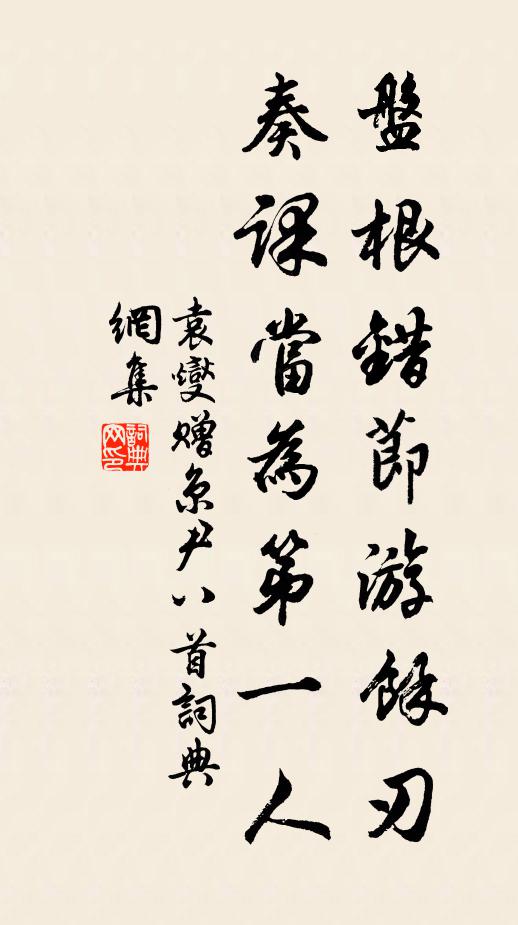 盤根錯節游餘刃
奏課當為第一人
袁燮贈京尹八首詞典
網集
詞典
网印